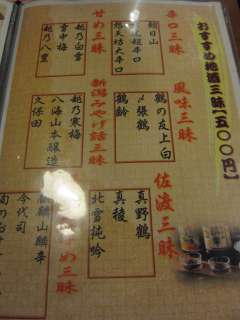 おすすめ地酒三昧一五〇〇円
辛口三昧
朝日山
越乃天坊大辛口
風味三昧
鶴の友上白
〆張鶴
鶴齢
佐渡三昧
真野鶴
真稜
北雪純吟
甘め三昧
越乃白雪
雪中梅
越乃八豊
新潟みやげ話三昧
越乃寒梅
八海山本醸造
久保田
甘め三昧
麒麟山
今代司